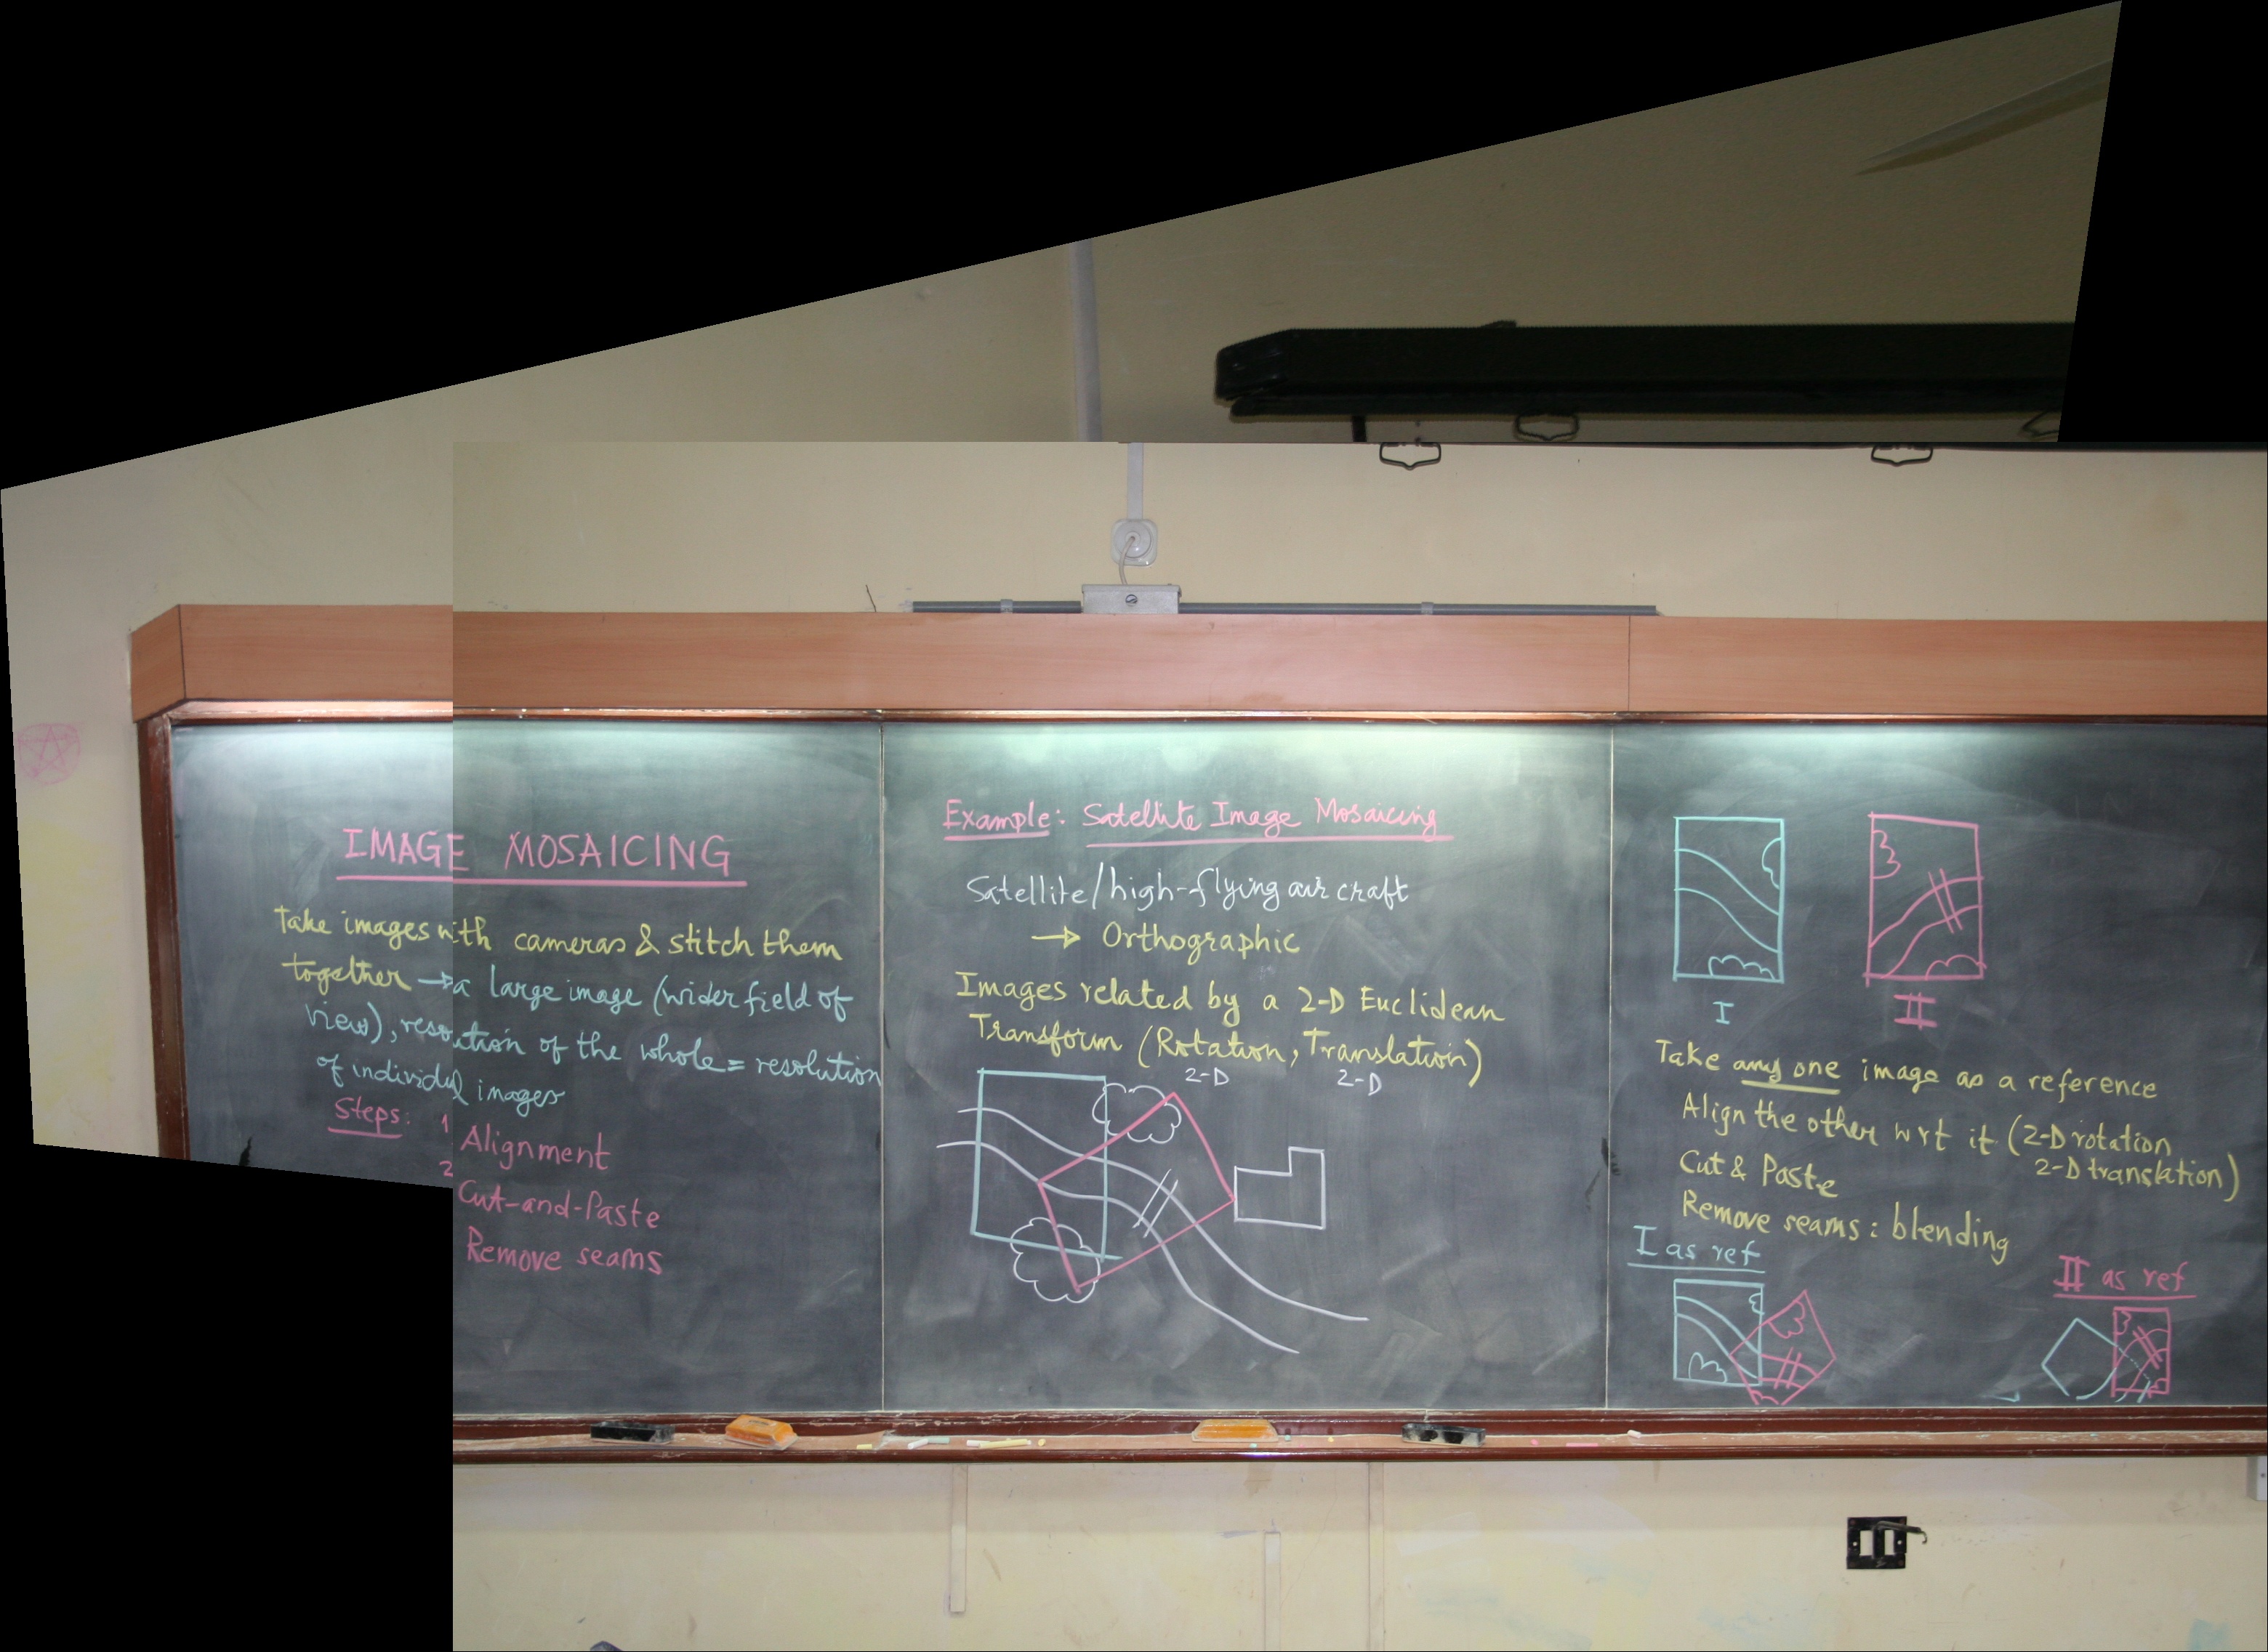 IMAGE MOSAICING
Take images with cameras & stitch them
together → a large image (wider field of
view), resolution of the whole = resolution
of individul images
Steps: 1 Alignment
2 Cut-and-Paste
Remove seams
Example: Satellite Image Mosaicing
Satellite/high-flying air craft
→ Orthographic
Images related by a 2-D Euclidean
Transform (Rotation, Translation)
2-D 2-D
I II
Take any one image as a reference
Align the other wrt it (2-D rotation
2-D translation)
Cut & Paste
Remove seams: blending
I as ref
II as ref